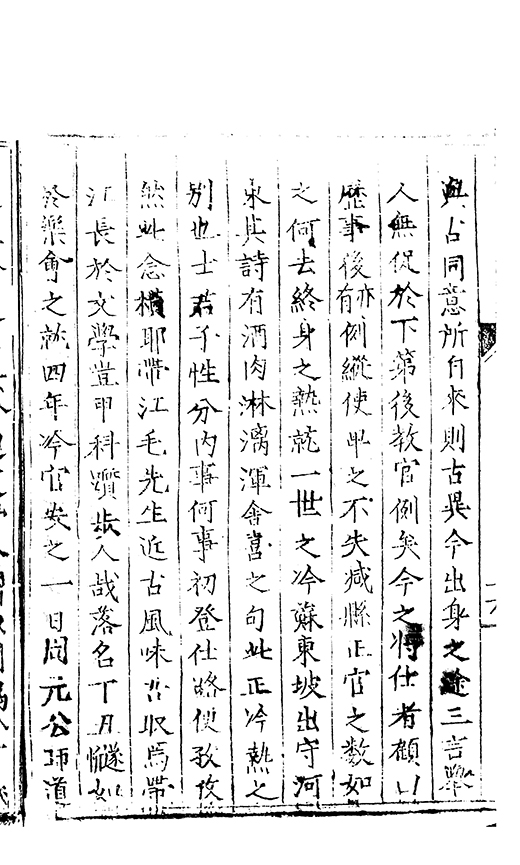 與古同意所自來則古異今出身之途三言舉
人無促於下第後教官例矣今之將仕者顧以
歷事後亦有例縱使甲之不失減縣正官之數如
之何去終身之熱就一世之冷蘇東坡出守河
東其詩有酒肉淋漓渾舍喜之句此正冷熱之
別也士君子性分內事何事初登仕路便孜孜
然此念橫耶帶江毛先生近古風味吾取焉帶
江長於文學豈甲科躓步人哉落名丁丑隧如
於樂會之就四年冷官安之一日周元公師道